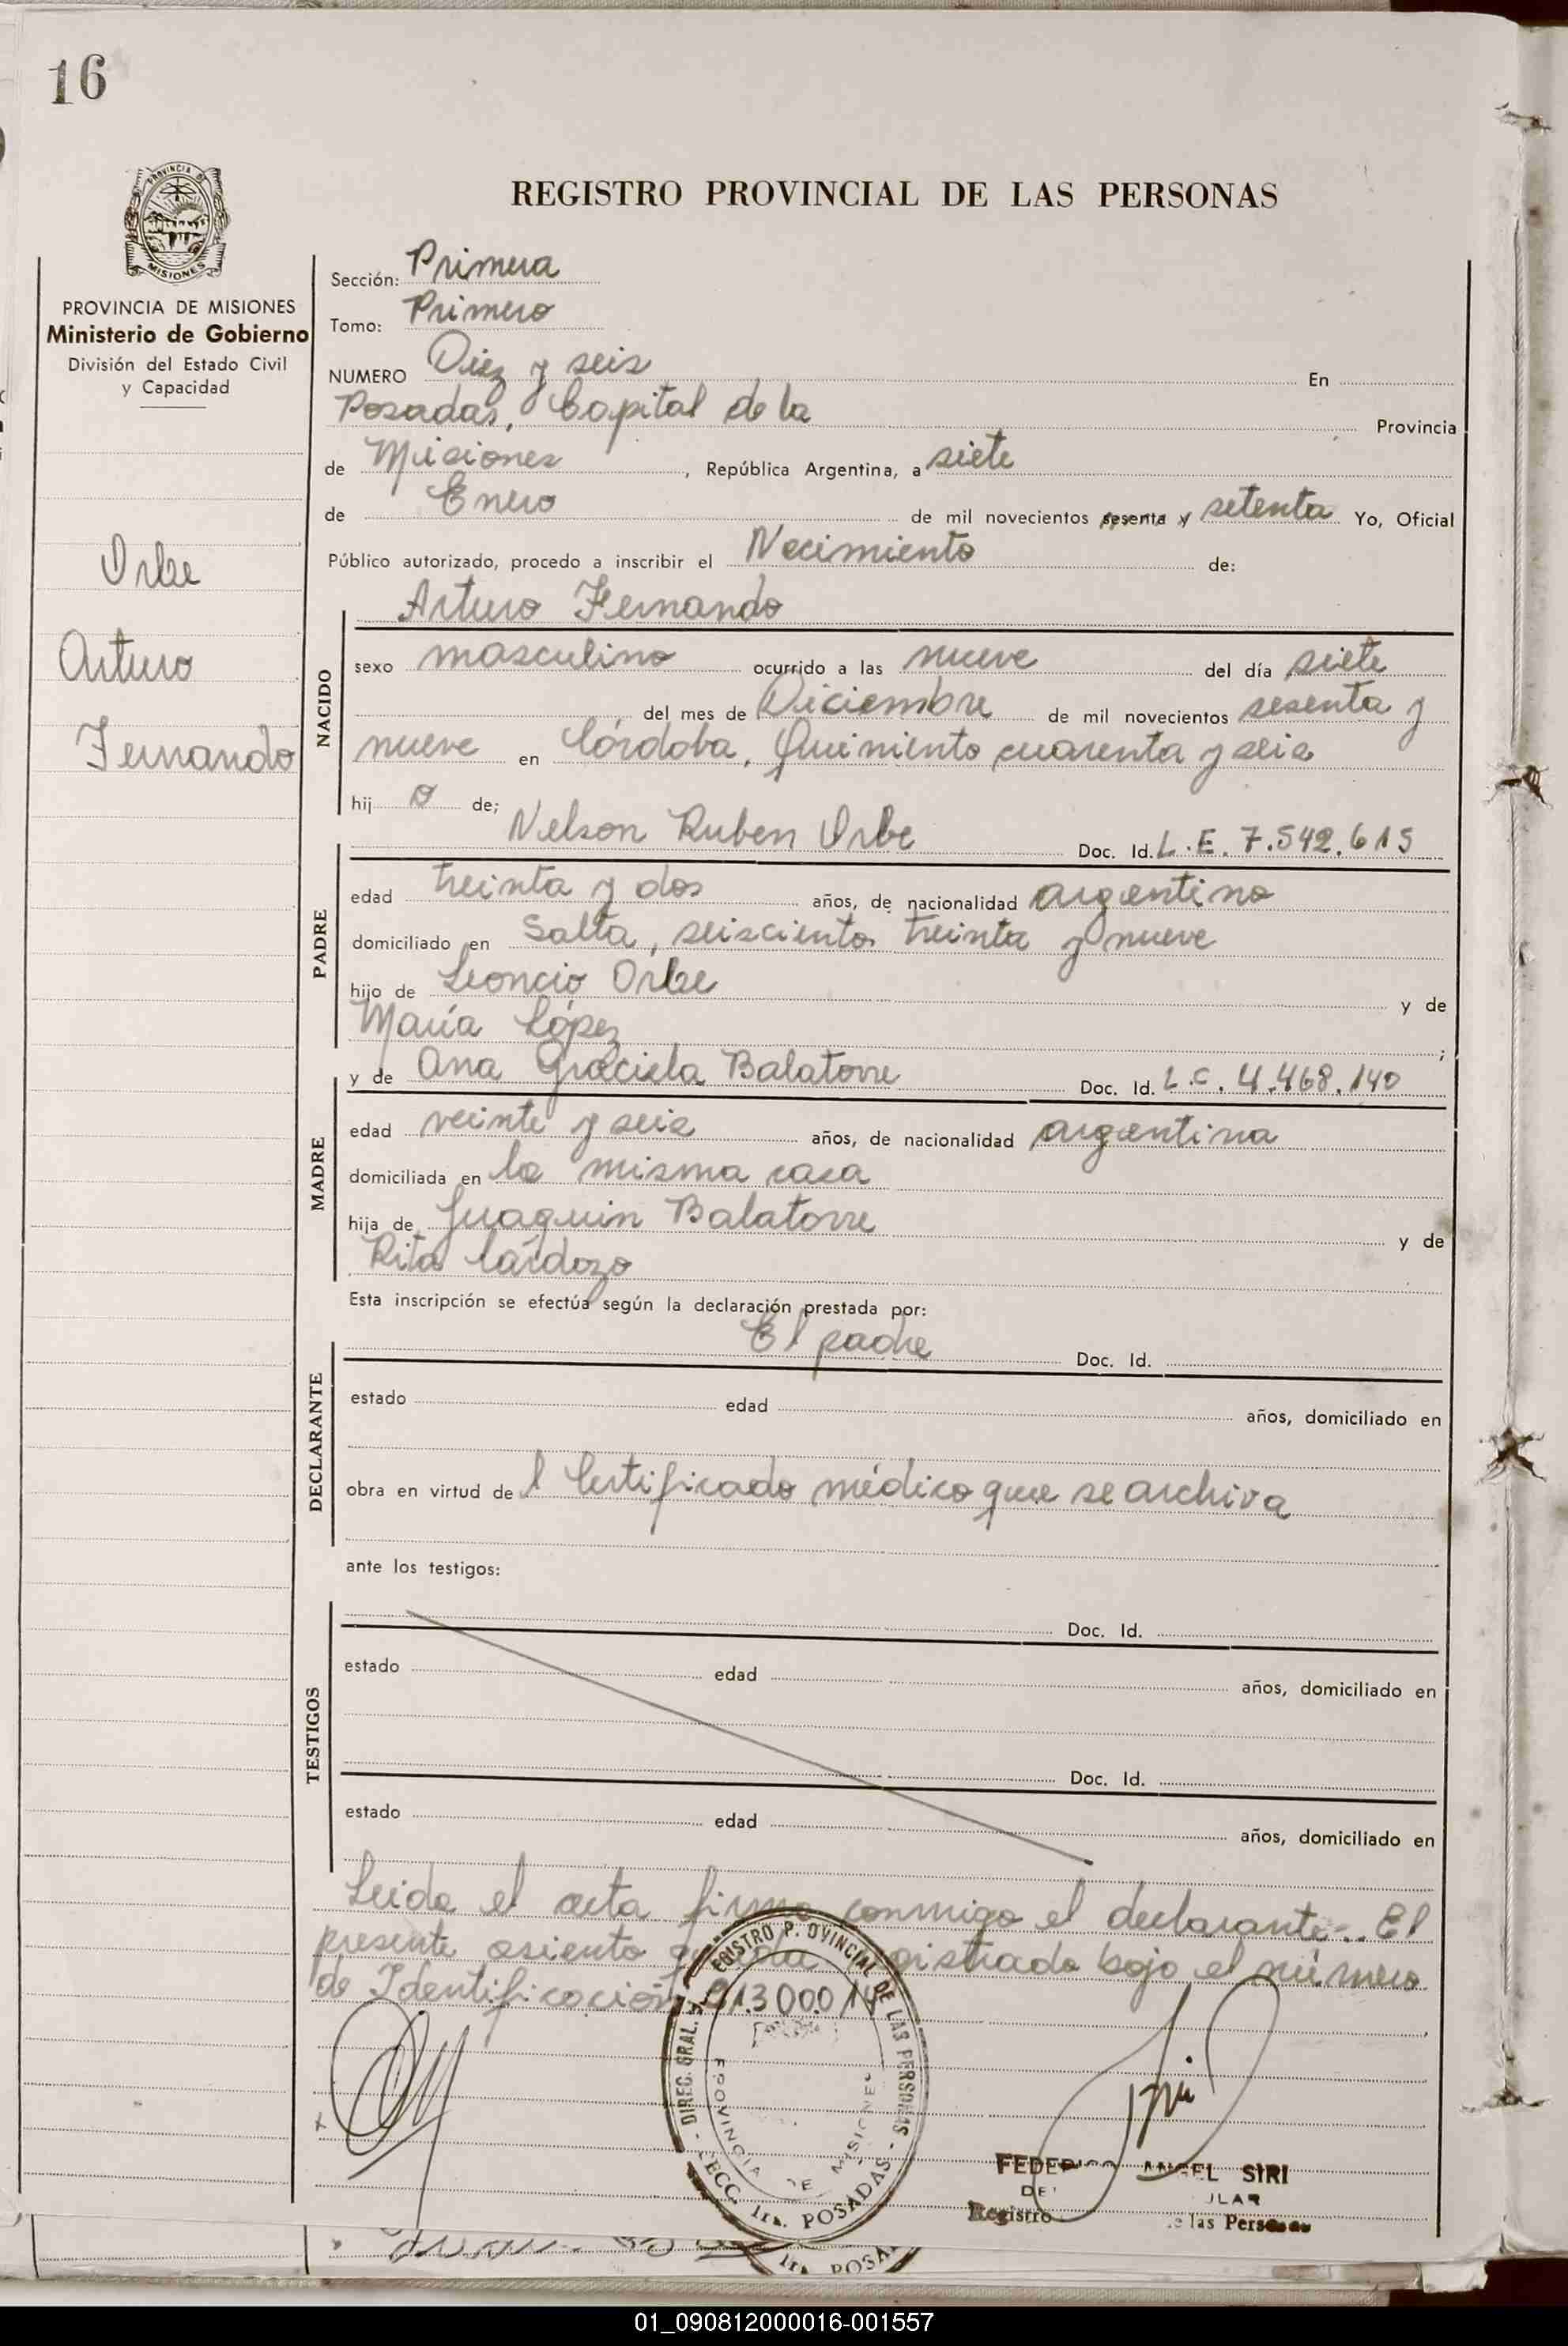 16
PROVINCIA DE
MISIONES
REGISTRO PROVINCIAL DE LAS PERSONAS
PROVINCIA DE MISIONES
Ministerio de Gobierno
División del Estado Civil
y Capacidad
Orbe
Arturo
Fernando
Sección: Primera
Tomo: Primero
NUMERO Diez y seis En
Posadas, Capital de la Provincia
de Misiones, República Argentina, a siete
de Enero de mil novecientos sesenta y setenta Yo, Oficial
Público autorizado, procedo a inscribir el Nacimiento de:
Arturo Fernando
NACIDO
sexo masculino ocurrido a las nueve del día siete
del mes de Diciembre de mil novecientos sesenta y
nueve en Córdoba, Quiniento cuarenta y seis
hij o de;
Nelson Ruben Orbe Doc. Id. L.E. 7.542.615
PADRE
edad treinta y dos años, de nacionalidad argentino
domiciliado en Salta, seiscientos treinta y nueve
hijo de Leoncio Orbe y de
María López ;
y de Ana Graciela Balatorre Doc. Id. L.C. 4.468.140
MADRE
edad veinte y seis años, de nacionalidad argentina
domiciliada en la misma casa
hija de Juaquin Balatorre y de
Rita Cárdozo
Esta inscripción se efectúa según la declaración prestada por:
El padre Doc. Id.
DECLARANTE
estado edad años, domiciliado en
obra en virtud de l Certificado médico que se archiva
ante los testigos:
TESTIGOS
Doc. Id.
estado edad años, domiciliado en
Doc. Id.
estado edad años, domiciliado en
Leida el acta firma conmigo el declarante.. El
presente asiento registrado bajo el número
de Identificación
DIREC. GRAL. DE LAS PERSONAS
PROVINCIA DE MISIONES
SECC. 1ra. POSADAS
ANGEL SIRI
Registro
de las Personas
1ra. POSA
01_090812000016-001557